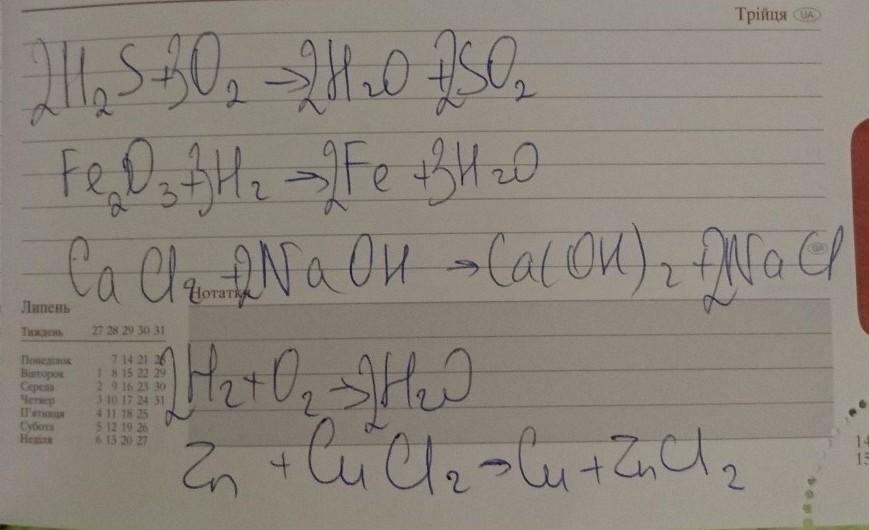 Трійця UA
2H₂S+3O₂→2H₂O+2SO₂
Fe₂O₃+3H₂→2Fe+3H₂O
CaCl₂+2NaOH→Ca(OH)₂+2NaCl
Нотатки
Липень
Тиждень 27 28 29 30 31
Понеділок 7 14 21 28
Вівторок 1 8 15 22 29
Середа 2 9 16 23 30
Четвер 3 10 17 24 31
П'ятниця 4 11 18 25
Субота 5 12 19 26
Неділя 6 13 20 27
2H₂+O₂→2H₂O
Zn+CuCl₂→Cu+ZnCl₂
14
15